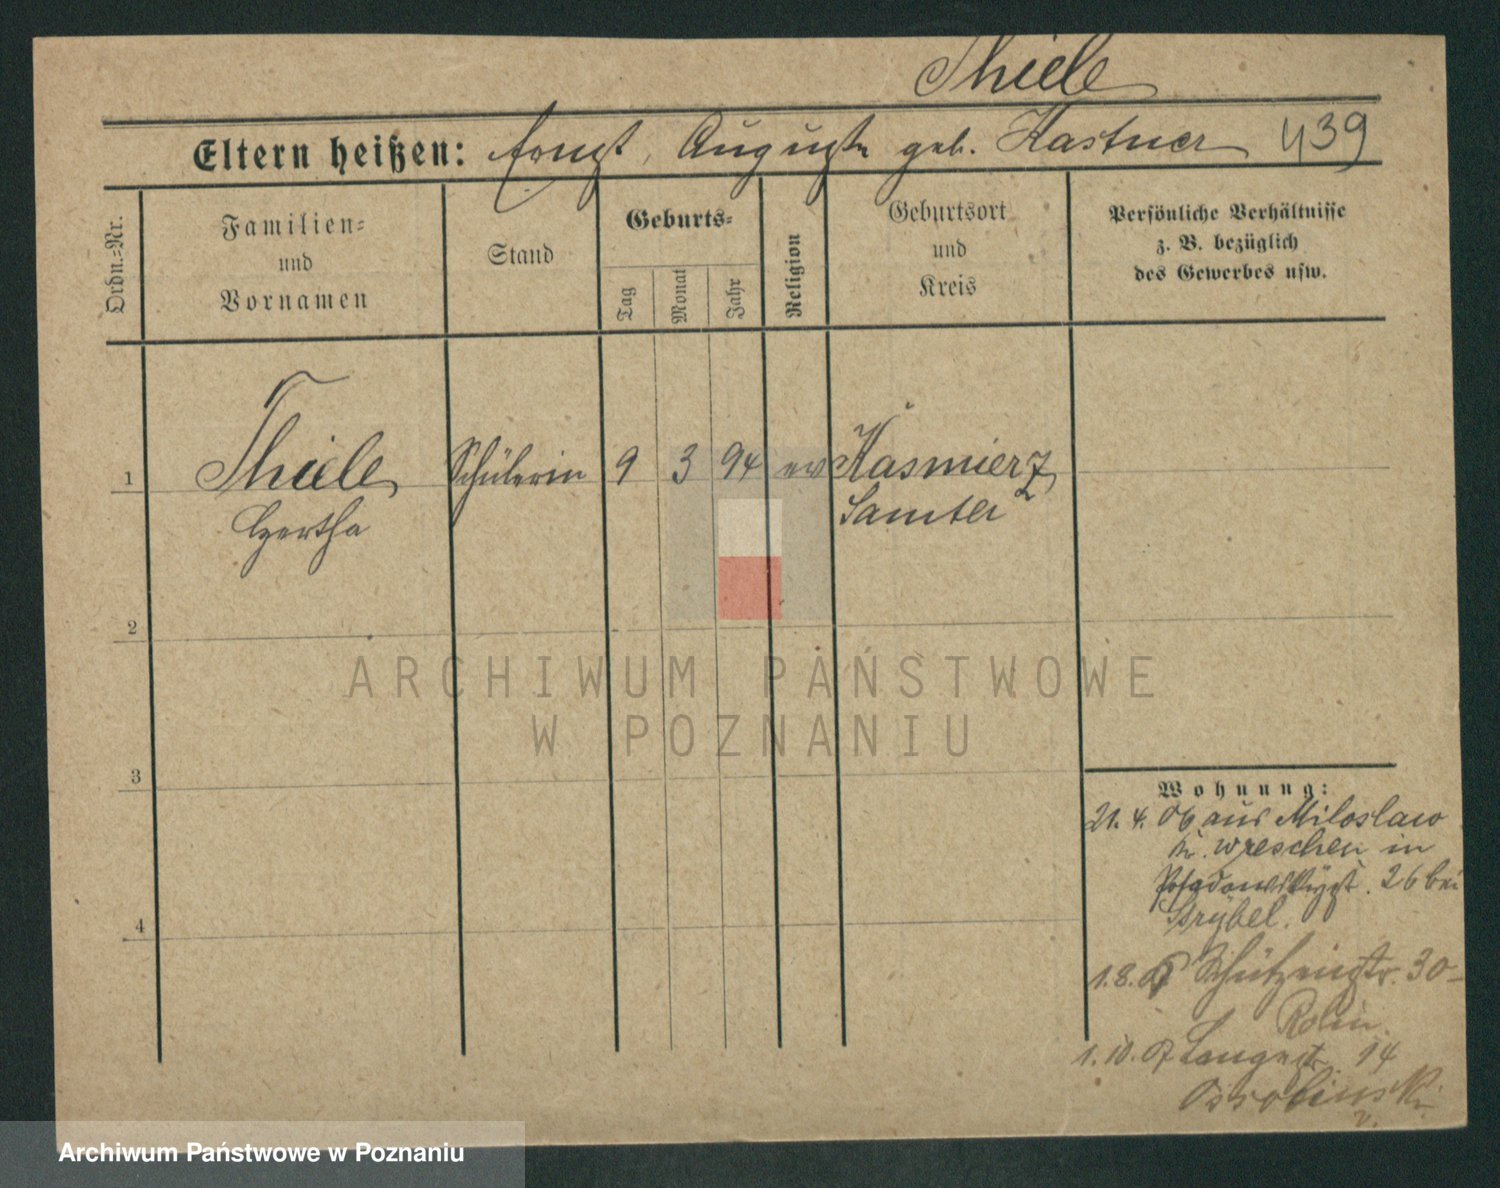 Thiele
Eltern heißen: Ernst, Auguste geb. Kastner 439
Ordn.=Nr.
Familien=
und
Vornamen
Stand
Geburts=
Tag
Monat
Jahr
Religion
Geburtsort
und
Kreis
Persönliche Verhältnisse
z. B. bezüglich
des Gewerbes usw.
1 Thiele Schülerin 9 3 94 ev Kasmierz
Hertha Samter
2
ARCHIWUM PAŃSTWOWE
W POZNANIU
3
Wohnung:
21. 4. 06 aus Miloslaw
Kr. Wreschen in
Posadowskystr. 26 bei
Strybel.
4
1. 8. Schützenstr. 30
1. 10. 07 Langestr 14
Ossolinski
Archiwum Państwowe w Poznaniu